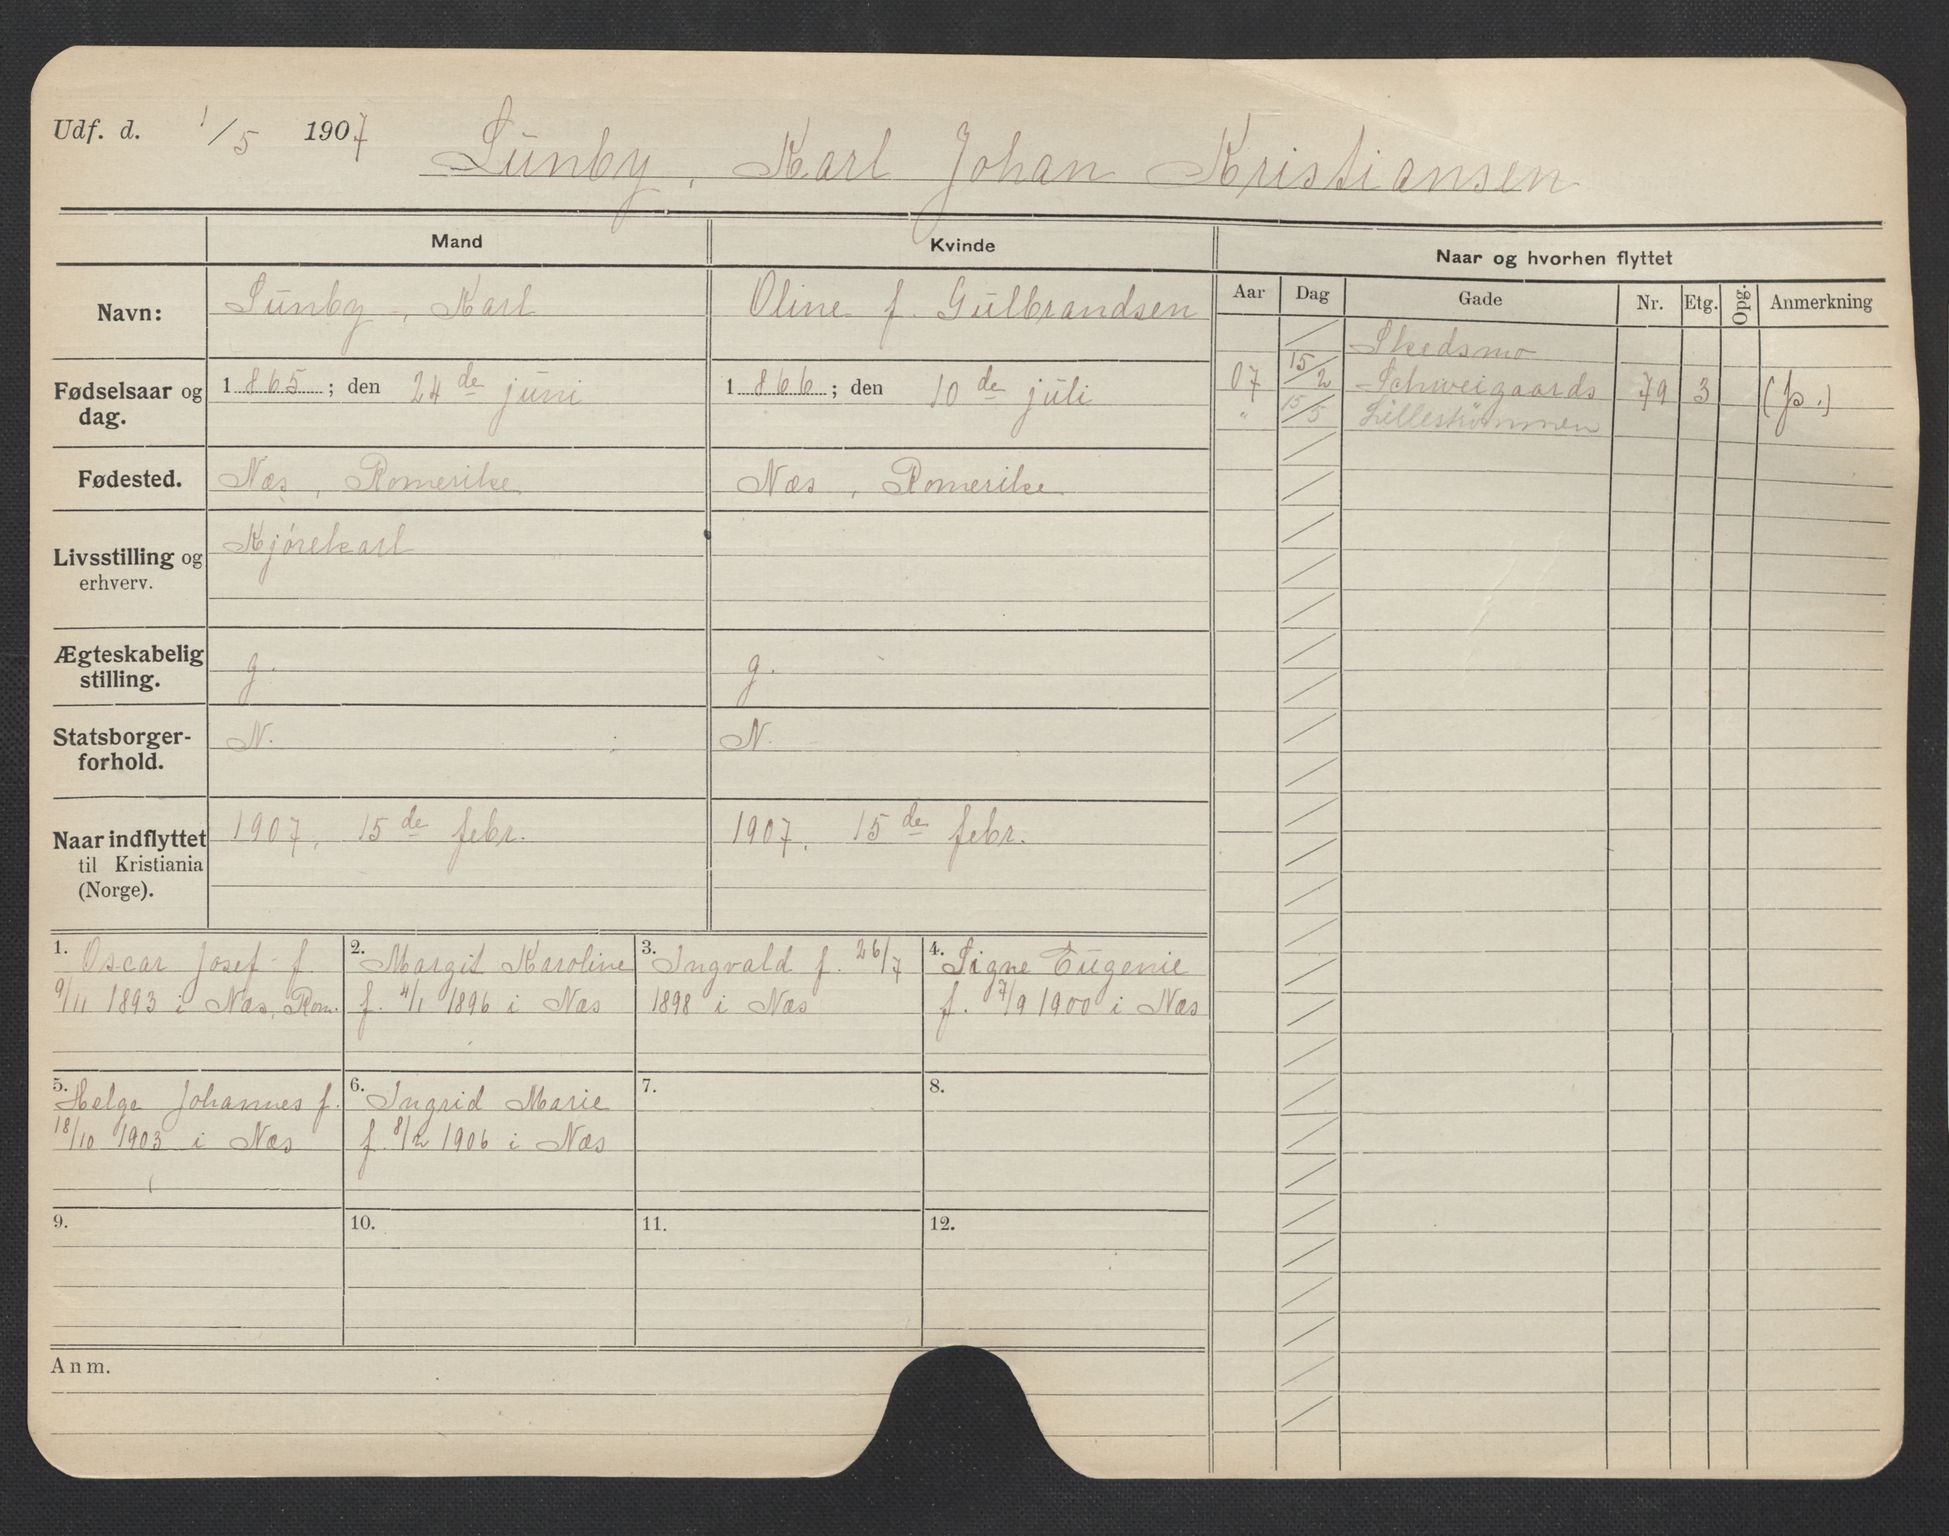 Udf. d. 1/5 1907 Sunby, Karl Johan Kristiansen
Mand
Kvinde
Naar og hvorhen flyttet
Navn: Sunby, Karl
Oline f. Gulbrandsen
Aar Dag Gade Nr. Etg. Opg. Anmerkning
Skedsmo
07 15/2 Schweigaards 79 3 (p.)
" 15/5 Lillestrømmen
Fødselsaar og 1865; den 24de juni
1866; den 10de juli
dag.
Fødested. Næs, Romerike
Næs, Romerike
Livsstilling og Kjørekarl
erhverv.
Ægteskabelig g.
g.
stilling.
Statsborger- N.
N.
forhold.
Naar indflyttet 1907, 15de febr.
1907, 15de febr.
til Kristiania
(Norge).
1. Oscar Josef f
9/11 1893 i Næs, Rom.
2. Margit Karoline
f. 4/1 1896 i Næs
3. Ingvald f. 26/7
1898 i Næs
4. Signe Eugenie
f. 7/9 1900 i Næs
5. Helge Johannes f.
18/10 1903 i Næs
6. Ingrid Marie
f. 8/2 1906 i Næs
7.
8.
9.
10.
11.
12.
Anm.